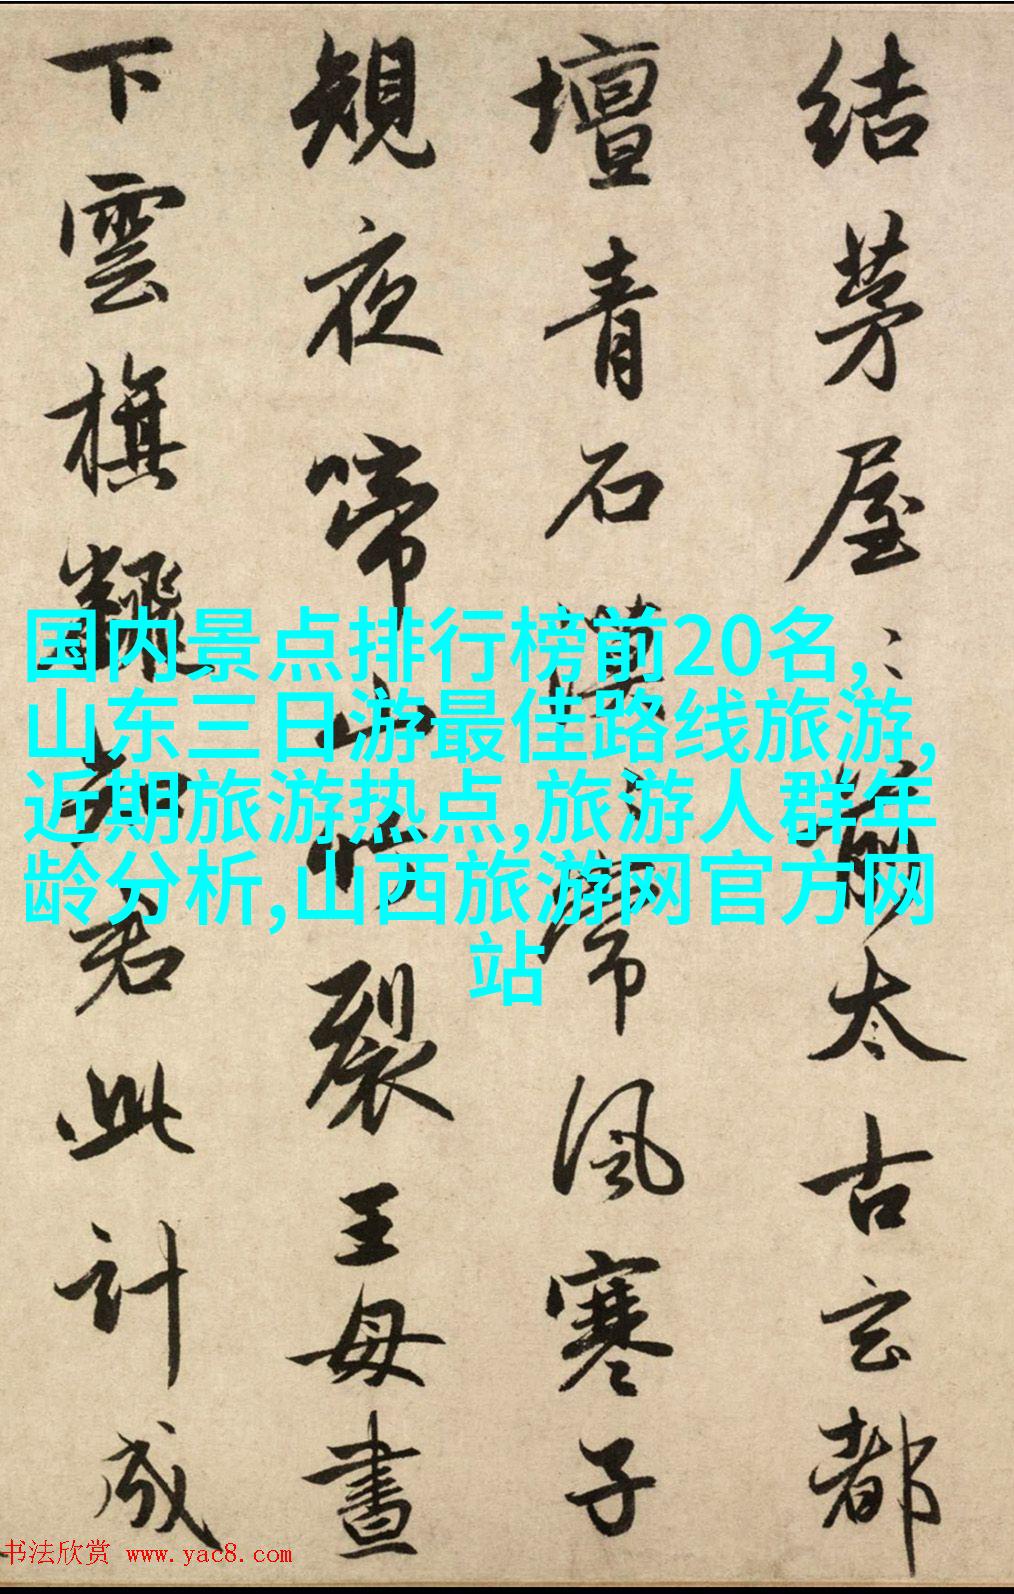 結茅屋〻前太古玄都
壇青石漠〻常風寒子
規夜啼山竹裂王母晝
下雲旗翻知君此計成
国内景点排行榜前20名,
山东三日游最佳路线旅游,
近期旅游热点,旅游人群年
龄分析,山西旅游网官方网
站
书法欣赏 www.yac8.com